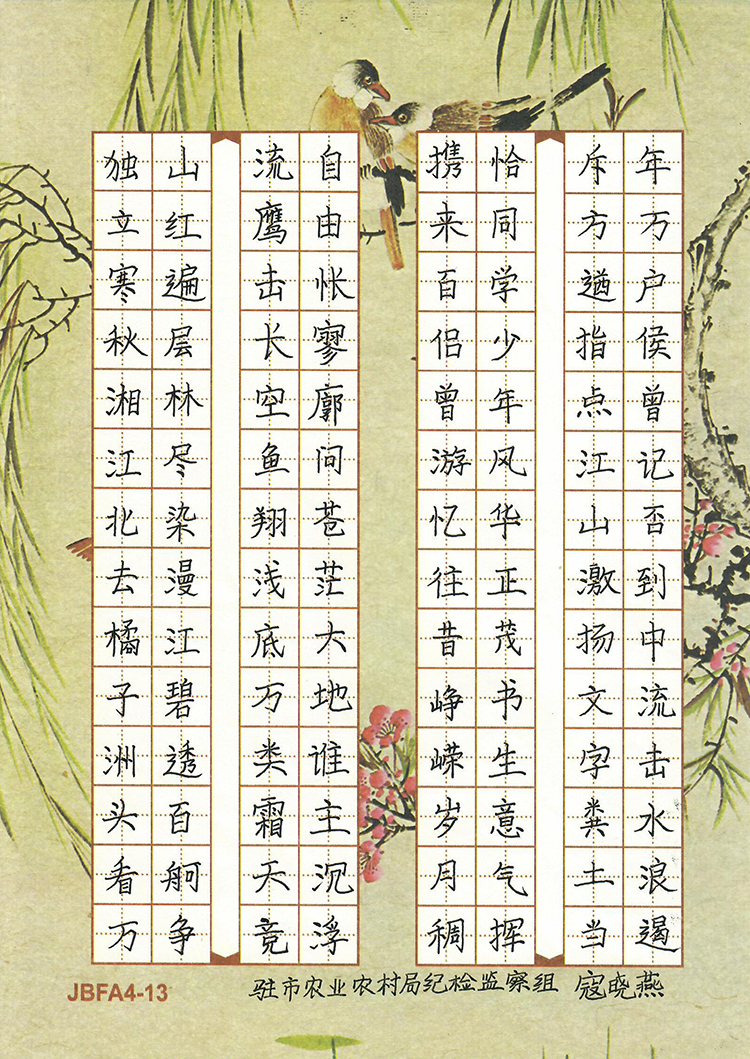 独立寒秋湘江北去橘子洲头看万
山红遍层林尽染漫江碧透百舸争
流鹰击长空鱼翔浅底万类霜天竞
自由怅寥廓问苍茫大地谁主沉浮
携来百侣曾游忆往昔峥嵘岁月稠
恰同学少年风华正茂书生意气挥
斥方遒指点江山激扬文字粪土当
年万户侯曾记否到中流击水浪遏
驻市农业农村局纪检监察组 寇晓燕
JBFA4-13